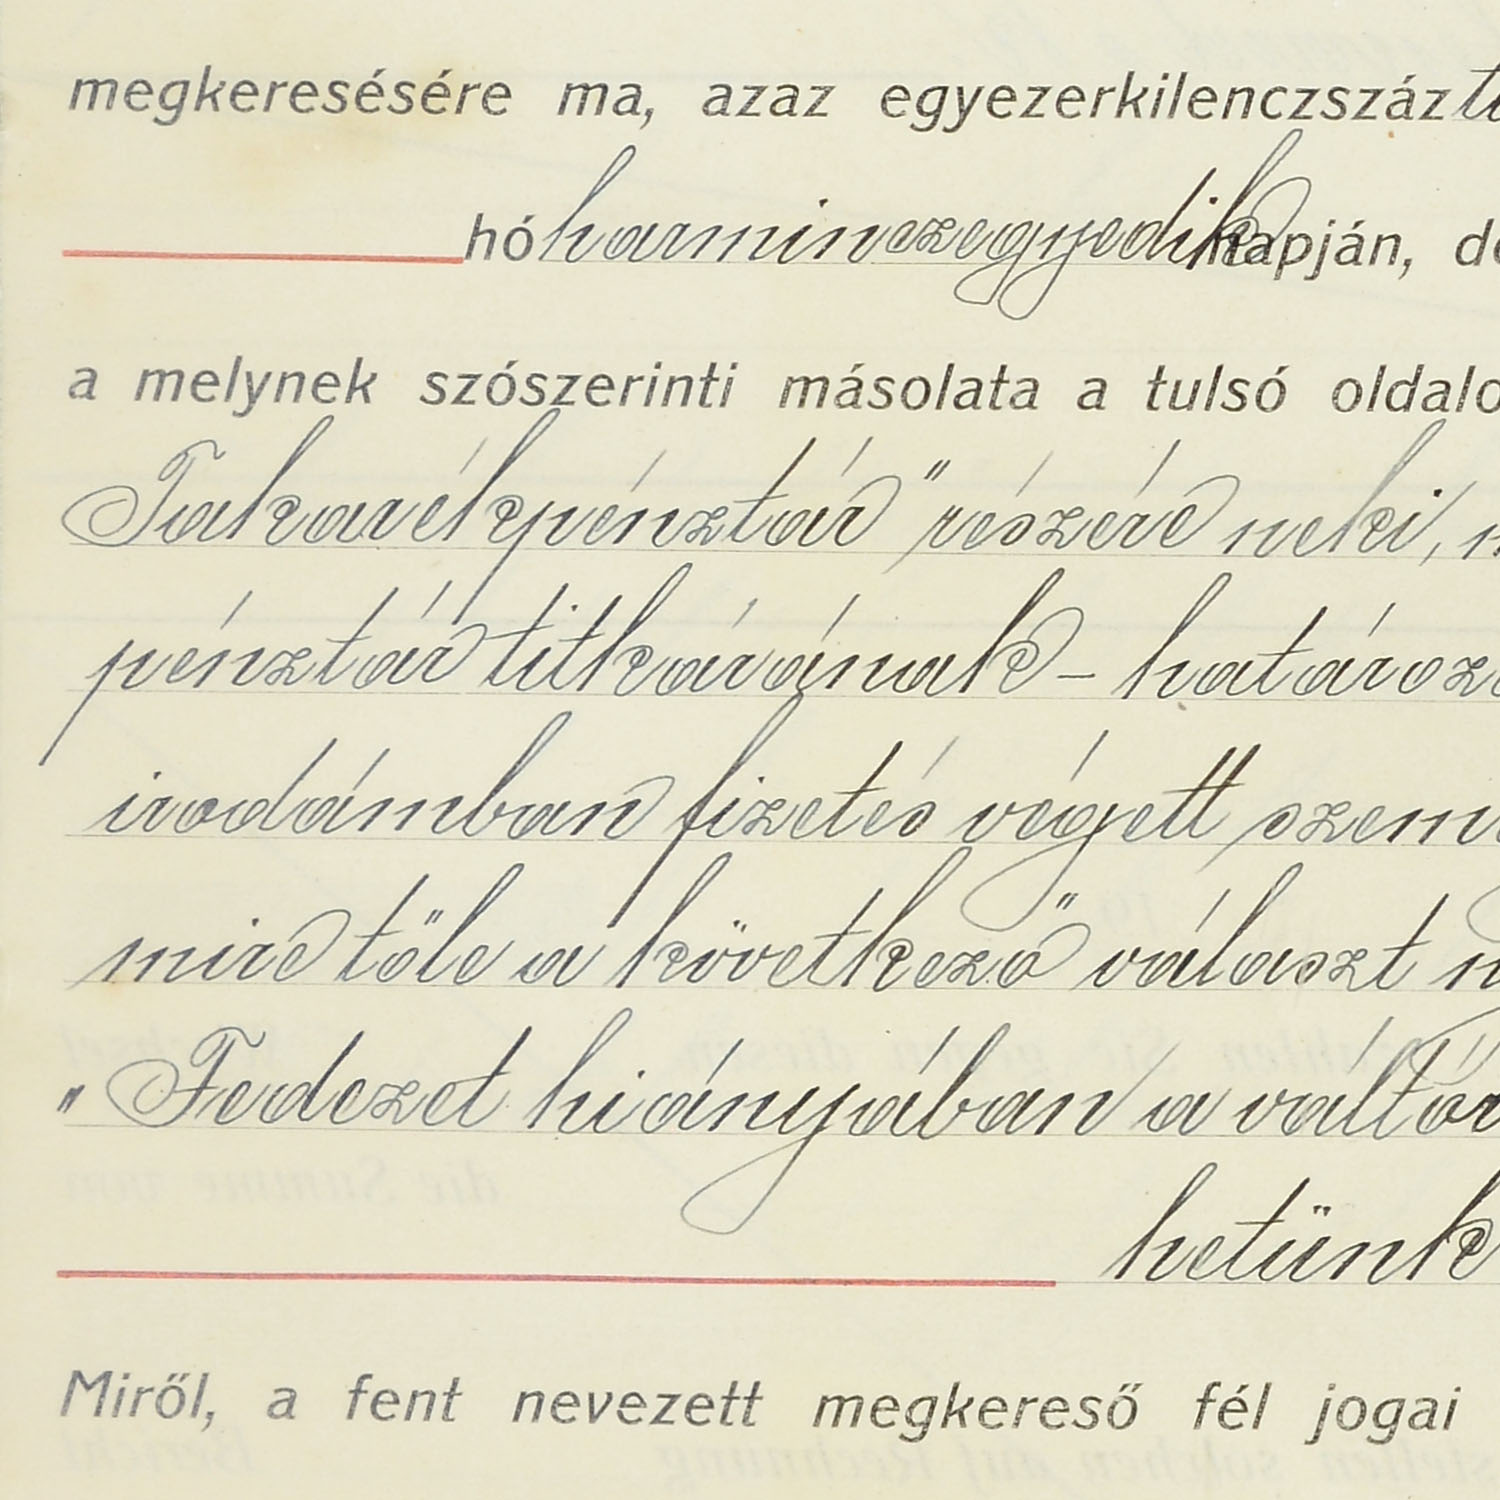 megkeresésére ma, azaz egyezerkilenczszáz
hó harminczegyedik napján,
a melynek szószerinti másolata a tulsó
Takarékpénztár" részére neki,
pénztár titkárának - 
irodámban fizetés végett
mire tőle a következő választ
"Fedezet hiányában a
hetünk
Miről, a fent nevezett megkereső fél jogai